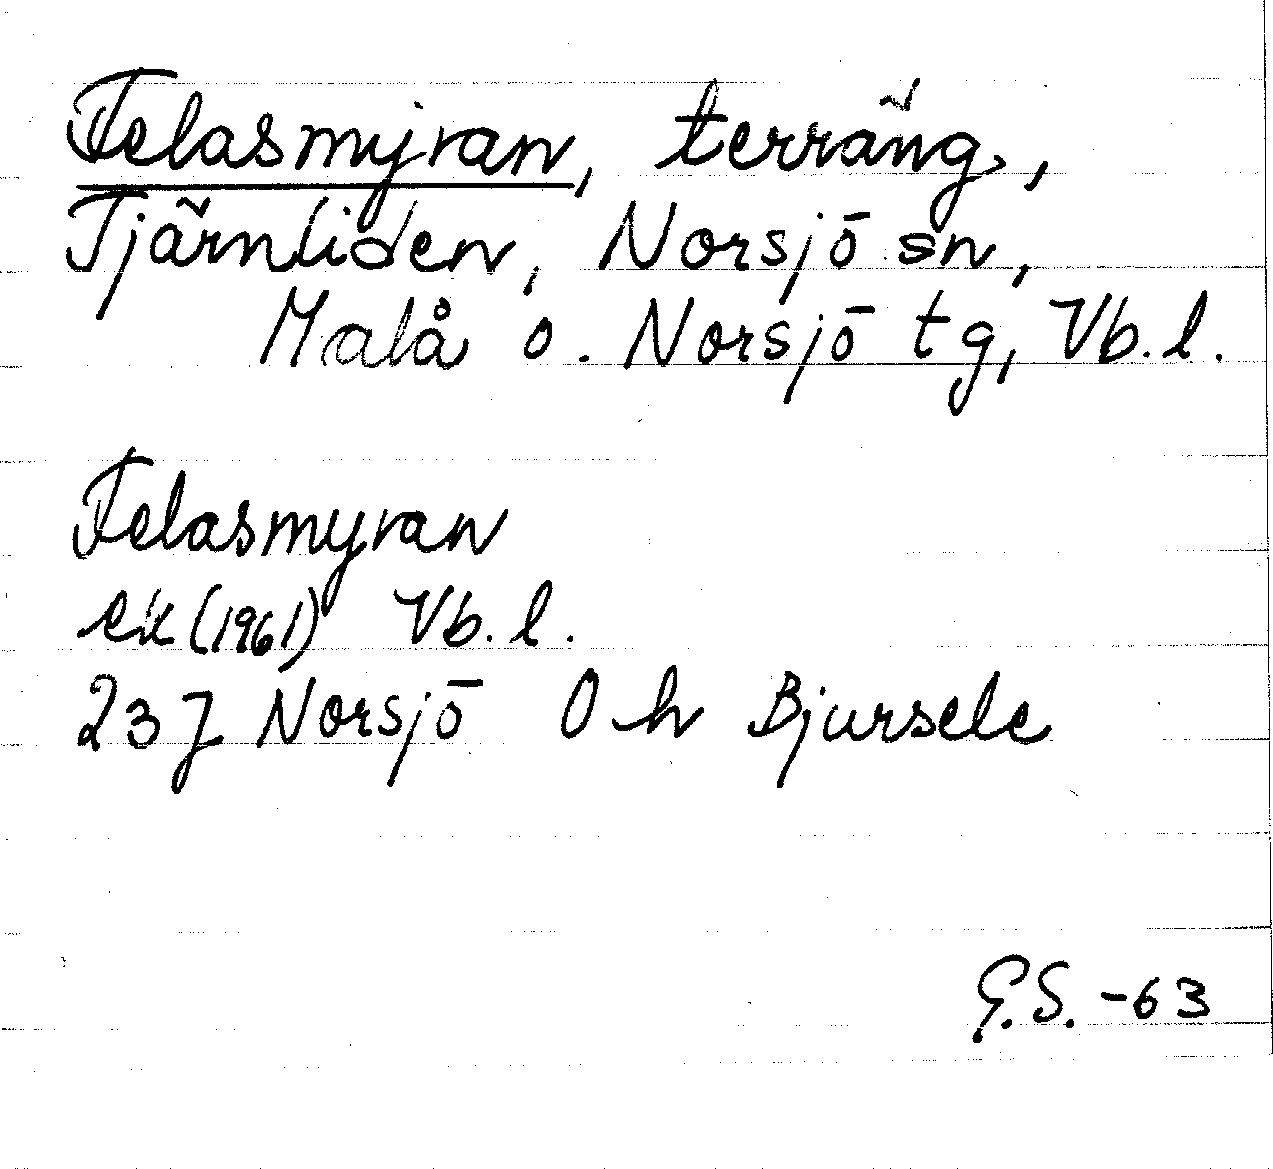 Felasmyran, terräng,
Tjärnliden, Norsjö sn,
Malå o. Norsjö tg, Vb. l.
Felasmyran
ek (1961) Vb. l.
23J Norsjö 0 h Bjursele
G.S. -63